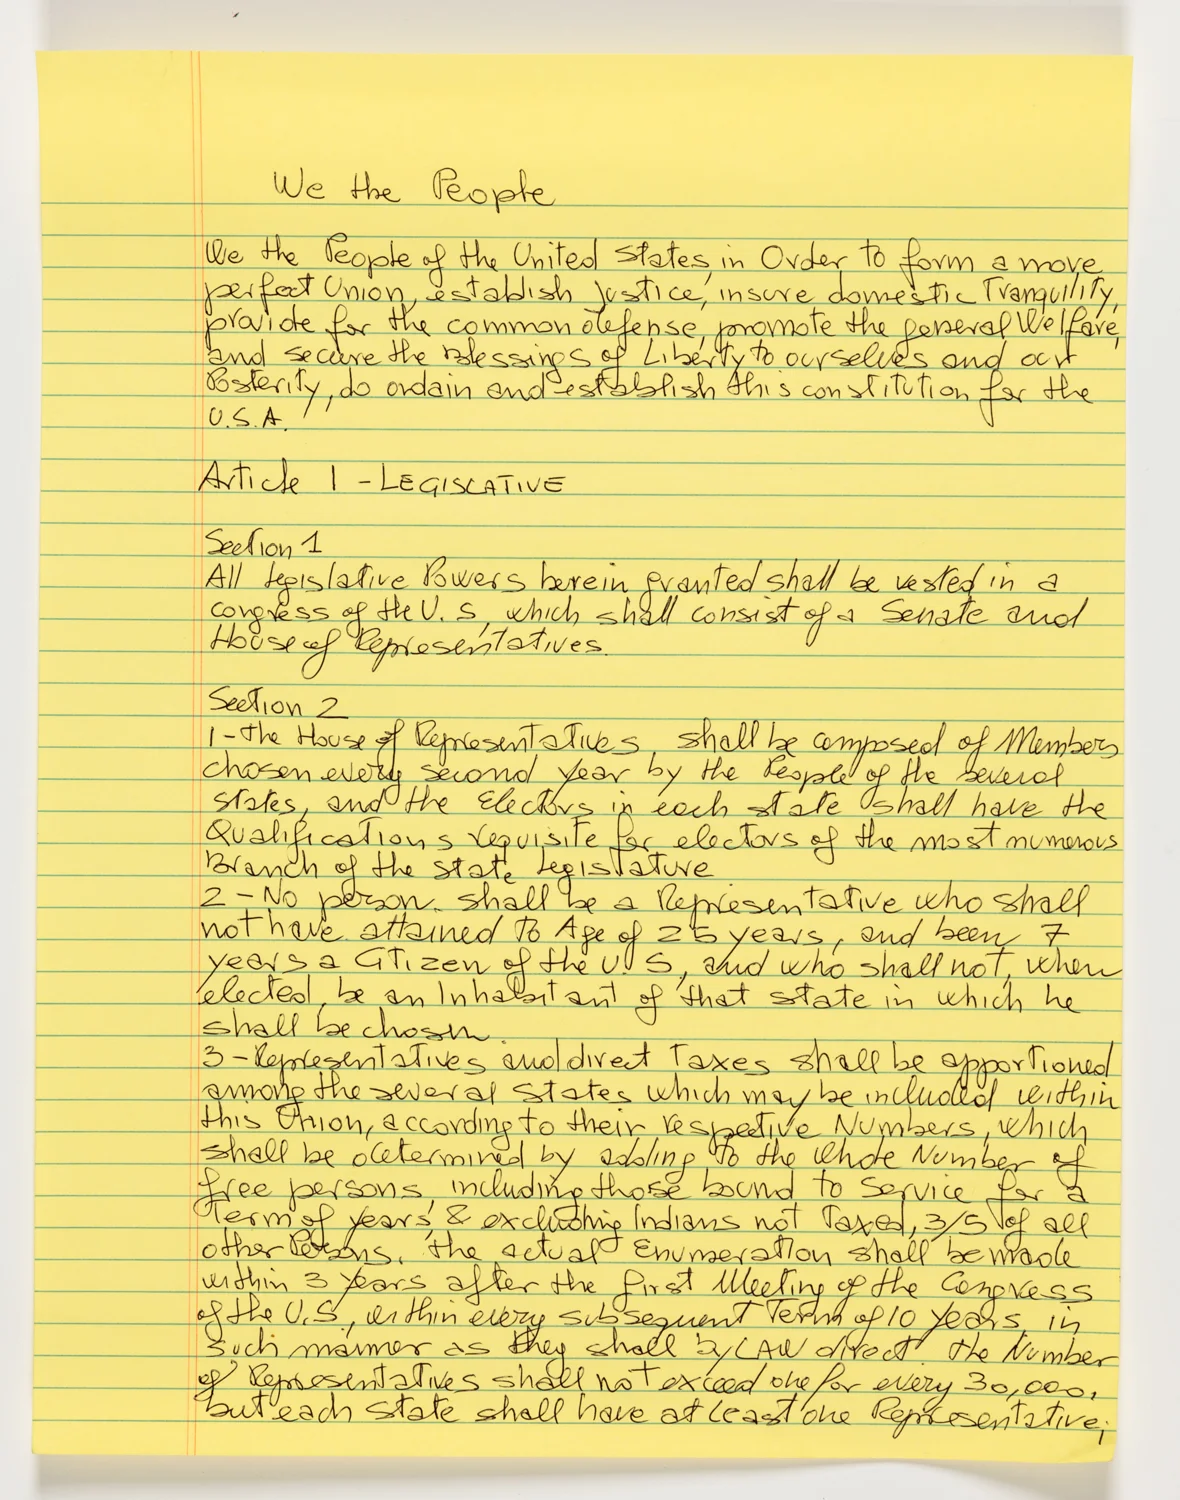 We the People
We the People of the United States, in Order to form a more
perfect Union, establish Justice, insure domestic Tranquility,
provide for the common defense, promote the general Welfare,
and secure the Blessings of Liberty to ourselves and our
Posterity, do ordain and establish this constitution for the
U.S.A.
Article 1 - LEGISLATIVE
Section 1
All legislative Powers herein granted shall be vested in a
congress of the U.S, which shall consist of a Senate and
House of Representatives.
Section 2
1 - The House of Representatives, shall be composed of Members
chosen every second year by the People of the several
states, and the Electors in each state shall have the
Qualifications requisite for electors of the most numerous
Branch of the state legislature
2 - No person shall be a Representative who shall
not have attained to Age of 25 years, and been 7
years a Citizen of the U.S, and who shall not, when
elected, be an Inhabitant of that state in which he
shall be chosen.
3 - Representatives and direct Taxes shall be apportioned
among the several States which may be included within
this Union, according to their respective Numbers, which
shall be determined by adding to the whole Number of
free persons, including those bound to Service for a
Term of years, & excluding Indians not Taxed, 3/5 of all
other Persons. The actual Enumeration shall be made
within 3 years after the first Meeting of the Congress
of the U.S, within every subsequent Term of 10 years, in
such manner as they shall by LAW direct. The Number
of Representatives shall not exceed one for every 30,000,
but each state shall have at least one Representative;